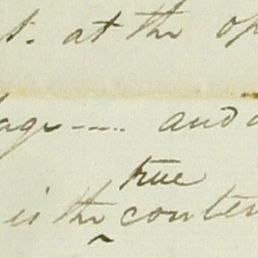 t. at the op
age---. and
true
is the conten